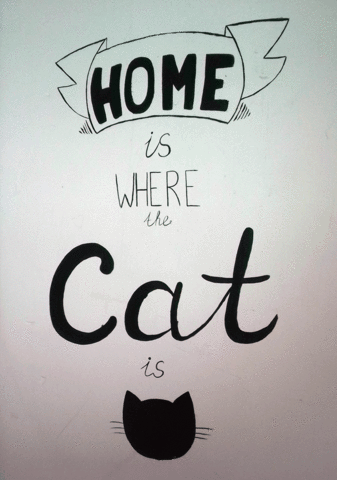 HOME
is
WHERE
the
Cat
is